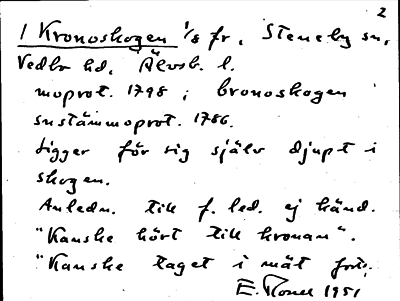 2
1 Kronoskogen 1/8 fr, Steneby sn,
Vedbo hd, Älvsb. l.
moprot. 1798 ; Cronoskogen
sustämmoprot. 1786.
Ligger för sig själv djupt i
skogen.
Anledn. till f. led. ej känd.
"Kanske hört till kronan".
"Kanske taget i mät
E. 1951